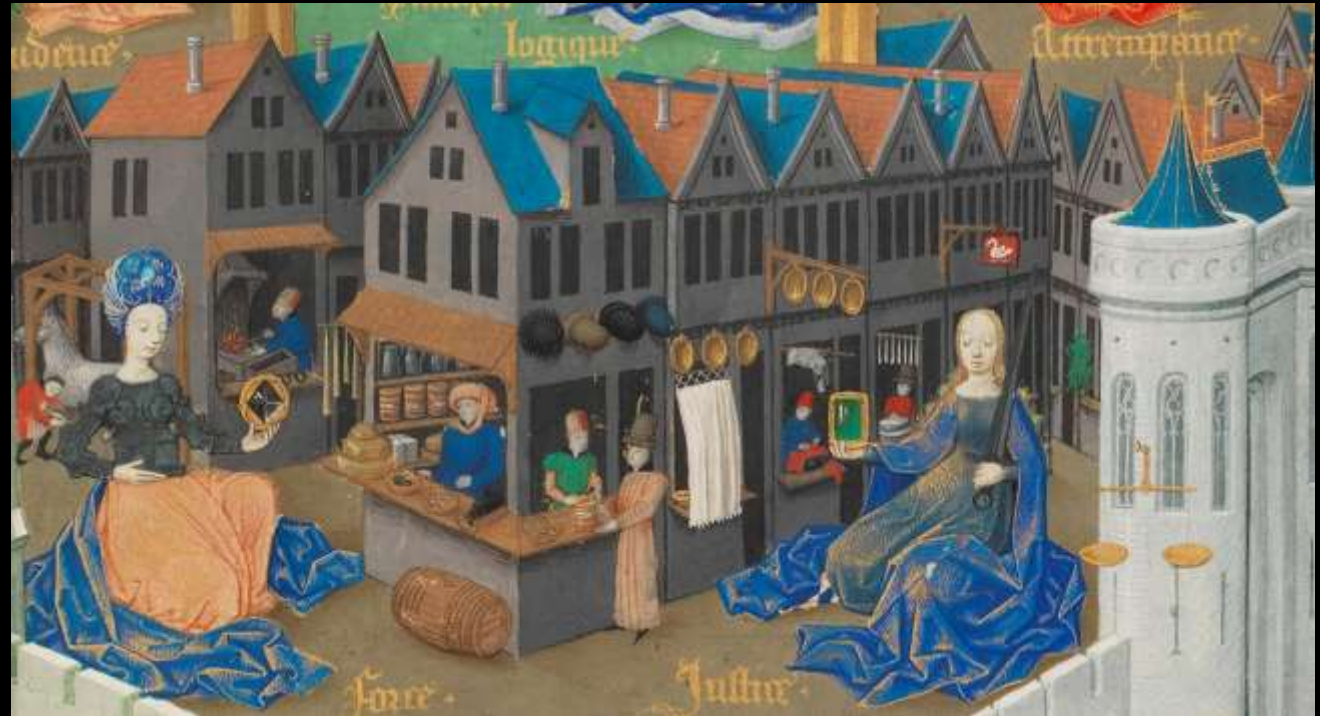 udence.
logique.
Attrempance.
force.
Justice.